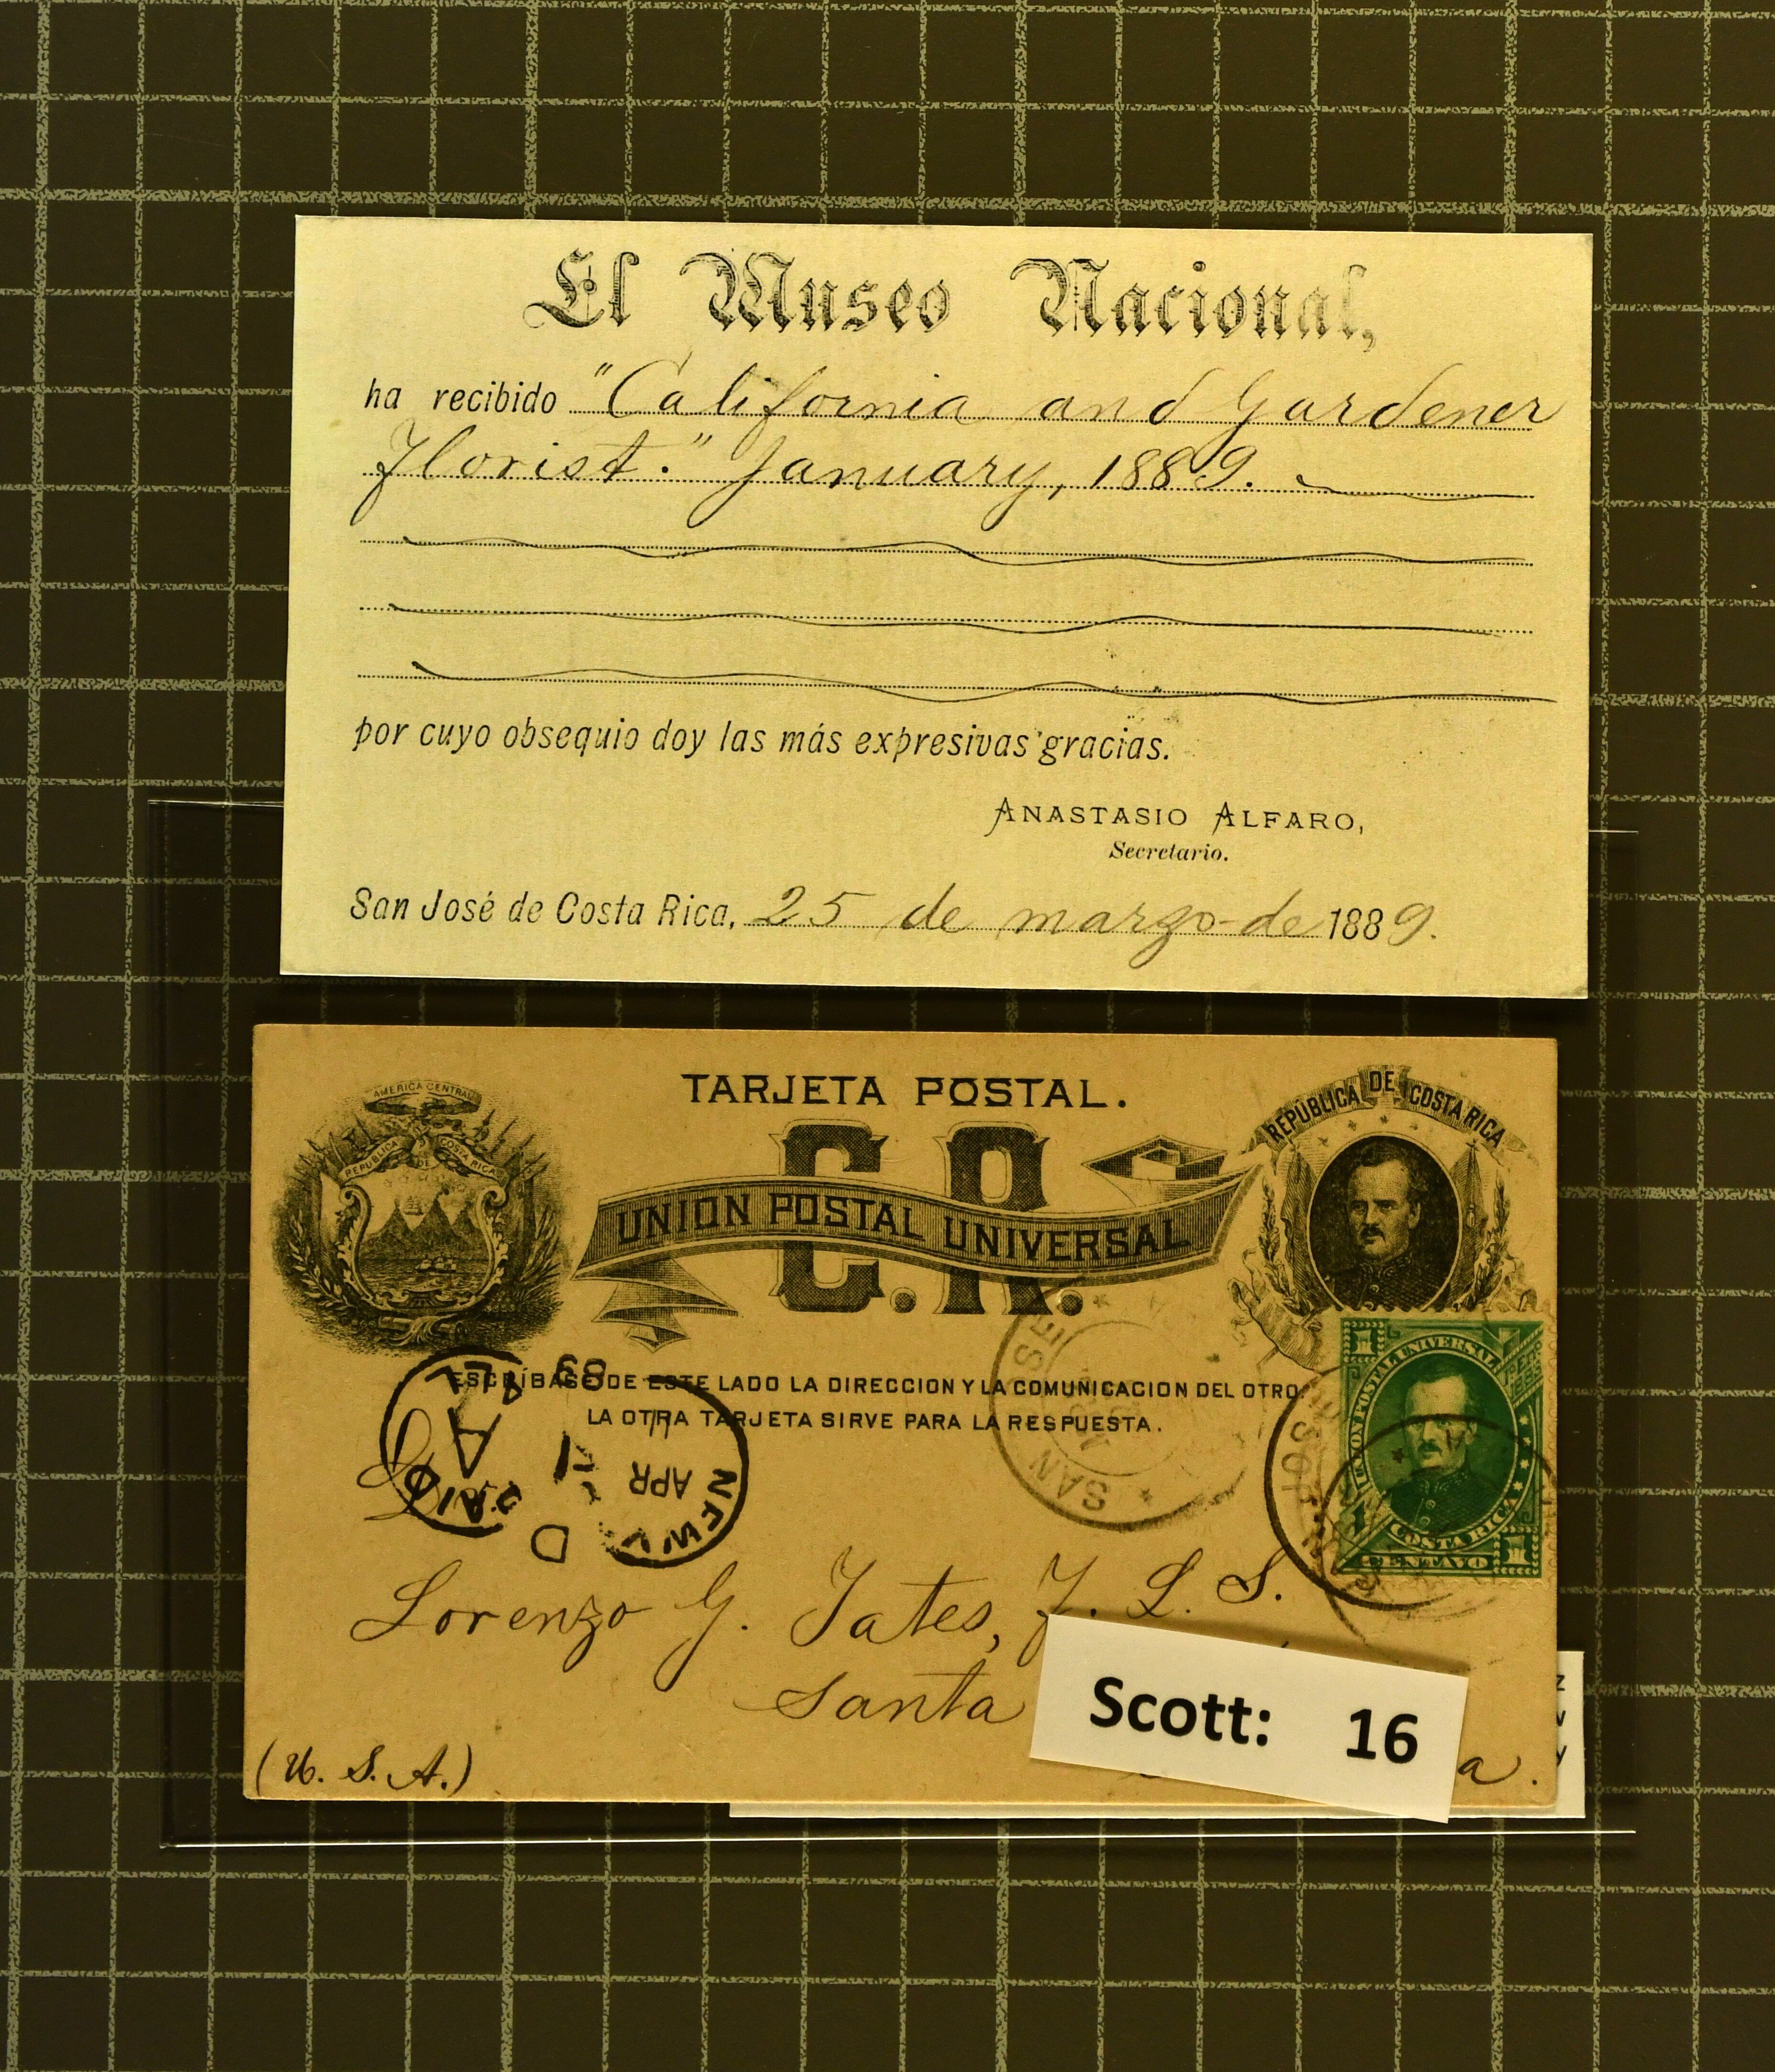 El Museo Nacional,
ha recibido "California and Gardener
Florist." January, 1889.
por cuyo obsequio doy las más expresivas gracias.
ANASTASIO ALFARO,
Secretario.
San José de Costa Rica, 25 de marzo de 1889.
TARJETA POSTAL.
AMERICA CENTRAL
REPUBLICA DE COSTA RICA
C.R.
UNION POSTAL UNIVERSAL
REPUBLICA DE COSTA RICA
ESCRÍBASE DE ESTE LADO LA DIRECCION Y LA COMUNICACION DEL OTRO.
LA OTRA TARJETA SIRVE PARA LA RESPUESTA.
1 UNION POSTAL UNIVERSAL
COSTA RICA
CENTAVO 1
SAN JOSE
NEW
APR
11
D
89
PAID
A
ALL
Lorenzo G. Yates, F. L. S.
Santa
(U. S. A.)
a.
Scott: 16